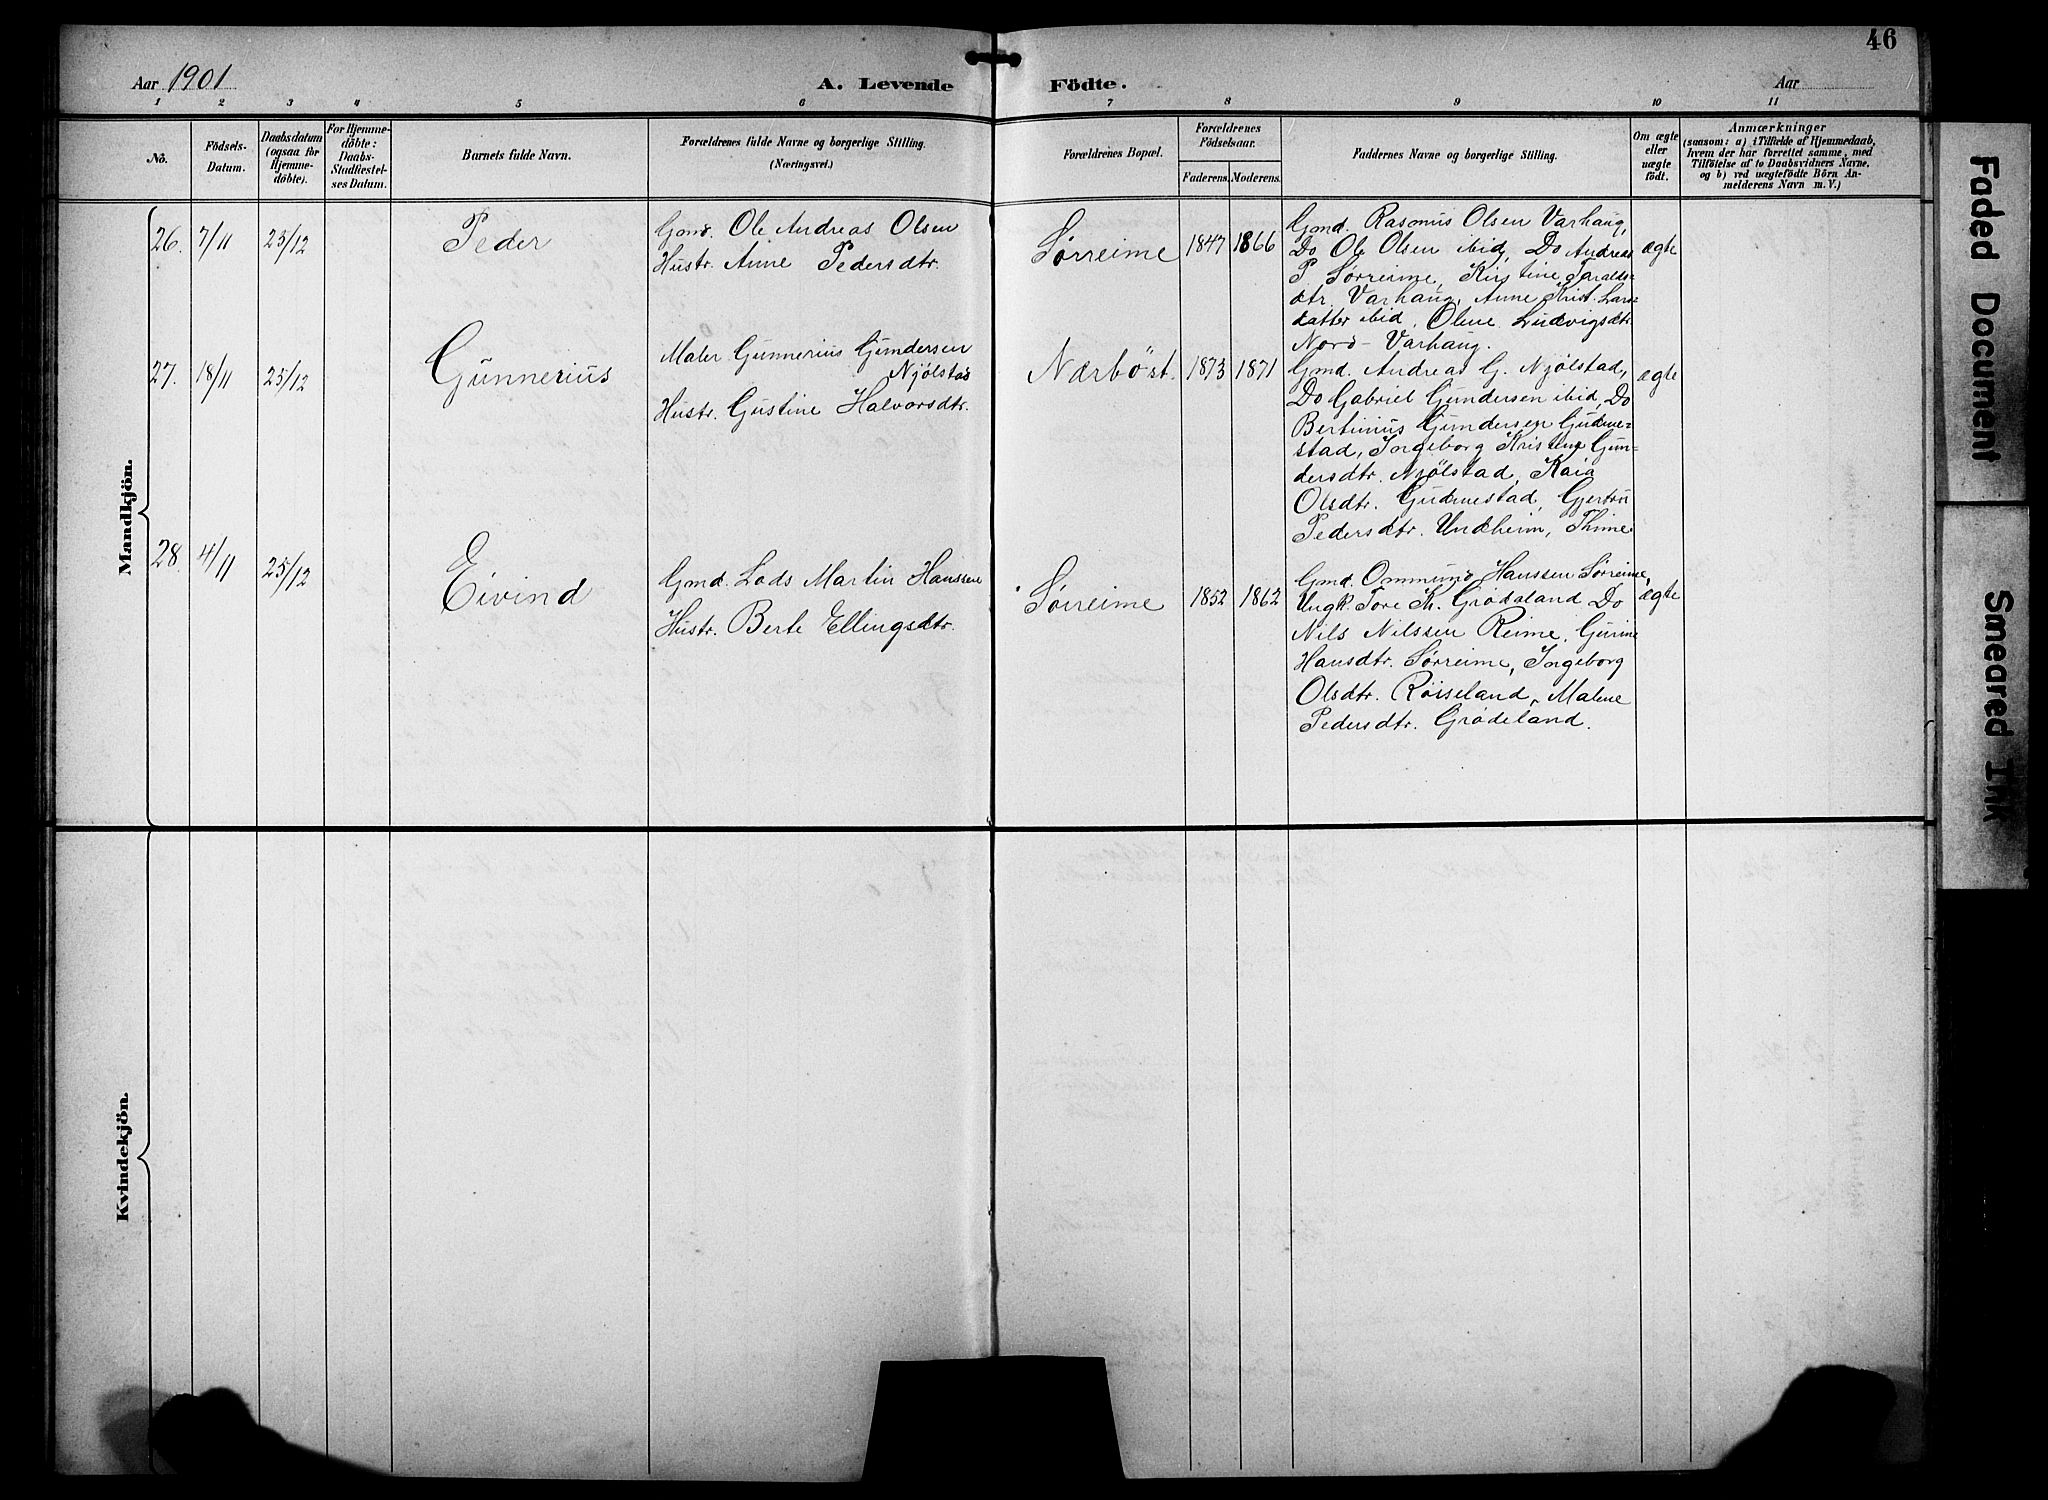 46
Aar 1901
A. Levende Födte.
Aar
1 2 3 4 5 6 7 8 9 10 11
No.
Födsels-
Datum.
Daabsdatum
(ogsaa for
Hjemme-
döbte).
For Hjemme-
döbte:
Daabs-
Stadfæstel-
ses Datum.
Barnets fulde Navn.
Forældrenes fulde Navne og borgerlige Stilling.
(Næringsvei.)
Forældrenes Bopæl.
Forældrenes
Födselsaar.
Faderens. Moderens.
Faddernes Navne og borgerlige Stilling.
Om ægte
eller
uægte
födt.
Anmærkninger
(saasom: a) i Tilfælde af Hjemmedaab,
hvem der har forrettet samme, med
Tilföielse af to Daabsvidners Navne,
og b) ved uægtefödte Börn An-
melderens Navn m. V.)
Mandkjön.
26. 7/11 23/12 Peder
Gmd. Ole Andreas Olsen
Hustr. Anne Pedersdtr.
Sørreime 1847 1866
Gmd. Rasmus Olsen Varhaug,
Do Ole Olsen ibid, Do Andreas
P. Sørreime, Kirstine Taralds-
dtr. Varhaug, Anne Krist. Lars-
datter ibid, Oline Ludvigsdtr.
Nord-Varhaug.
ægte
27. 18/11 25/12 Gunnerius
Maler Gunnerius Gundersen
Njølstad
Hustr. Gustine Halvorsdtr.
Nærböst. 1873 1871
Gmd. Andreas G. Njølstad,
Do Gabriel Gundersen ibid, Do
Bertinius Gundersen Gudme-
stad, Ingeborg Kristine Gun-
dersdtr. Njölstad, Kaia
Olsdtr. Gudmestad, Gjertru
Pedersdtr. Undheim, Thime
ægte
28. 4/11 25/12 Eivind
Gmd. Lads Martin Hanssen
Hustr. Berte Ellingsdtr.
Sørreime 1852 1862
Gmd. Ommund Hanssen Sørreime,
Ungk. Tore K. Grødaland Do
Nils Nilssen Reime, Gurine
Hansdtr. Sørreime, Ingeborg
Olsdtr. Røiseland, Malene
Pedersdtr. Grødeland.
ægte
Kvindekjön.
Faded Document
Smeared Ink